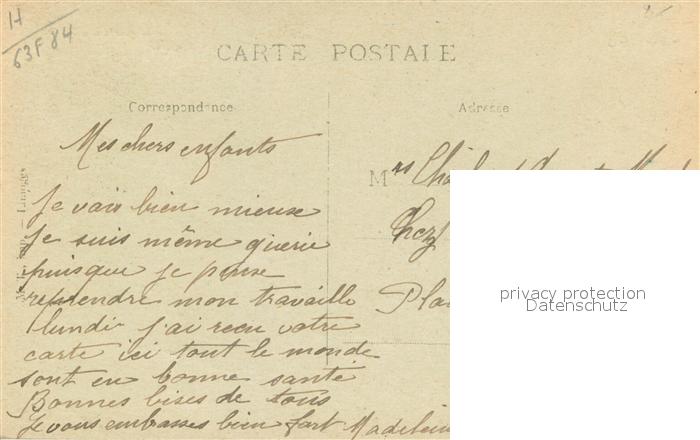 H
63F 84
CARTE POSTALE
Correspondance
Adresse
Mes chers enfants
Mrs
Je vais bien mieux
Je suis même guerie
Chez
puisque je pense
reprendre mon travaille
Pla
lundi j'ai recu votre
carte ici tout le monde
sont en bonne santé
Bonnes bises de tous
Je vous embrasses bien fort Madelein
privacy protection
Datenschutz